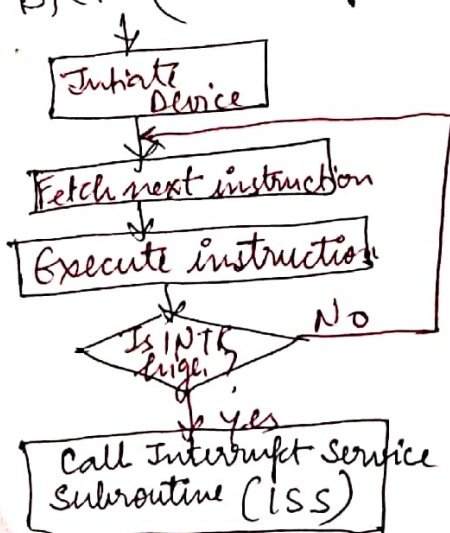 Initiate
Device
Fetch next instruction
Execute instruction
No
Is INTR
high?
yes
Call Interrupt Service
Subroutine (ISS)